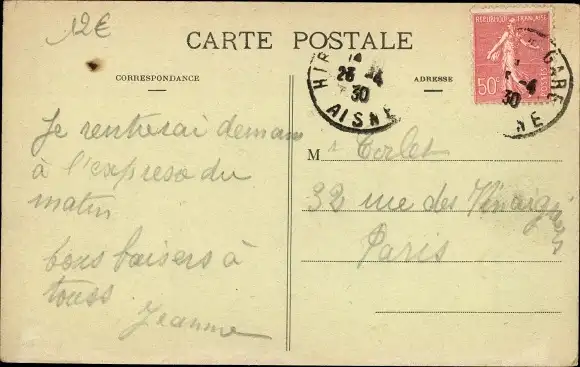 12€
CARTE POSTALE
CORRESPONDANCE
ADRESSE
RÉPUBLIQUE FRANÇAISE
50c
POSTES
14
23 -4
30
AISNE
GARE
-4
30
NE
Je rentrerai demain
à l'express du
matin
bons baisers à
tous
Jeanne
M
32 rue des Vinaigriers
Paris